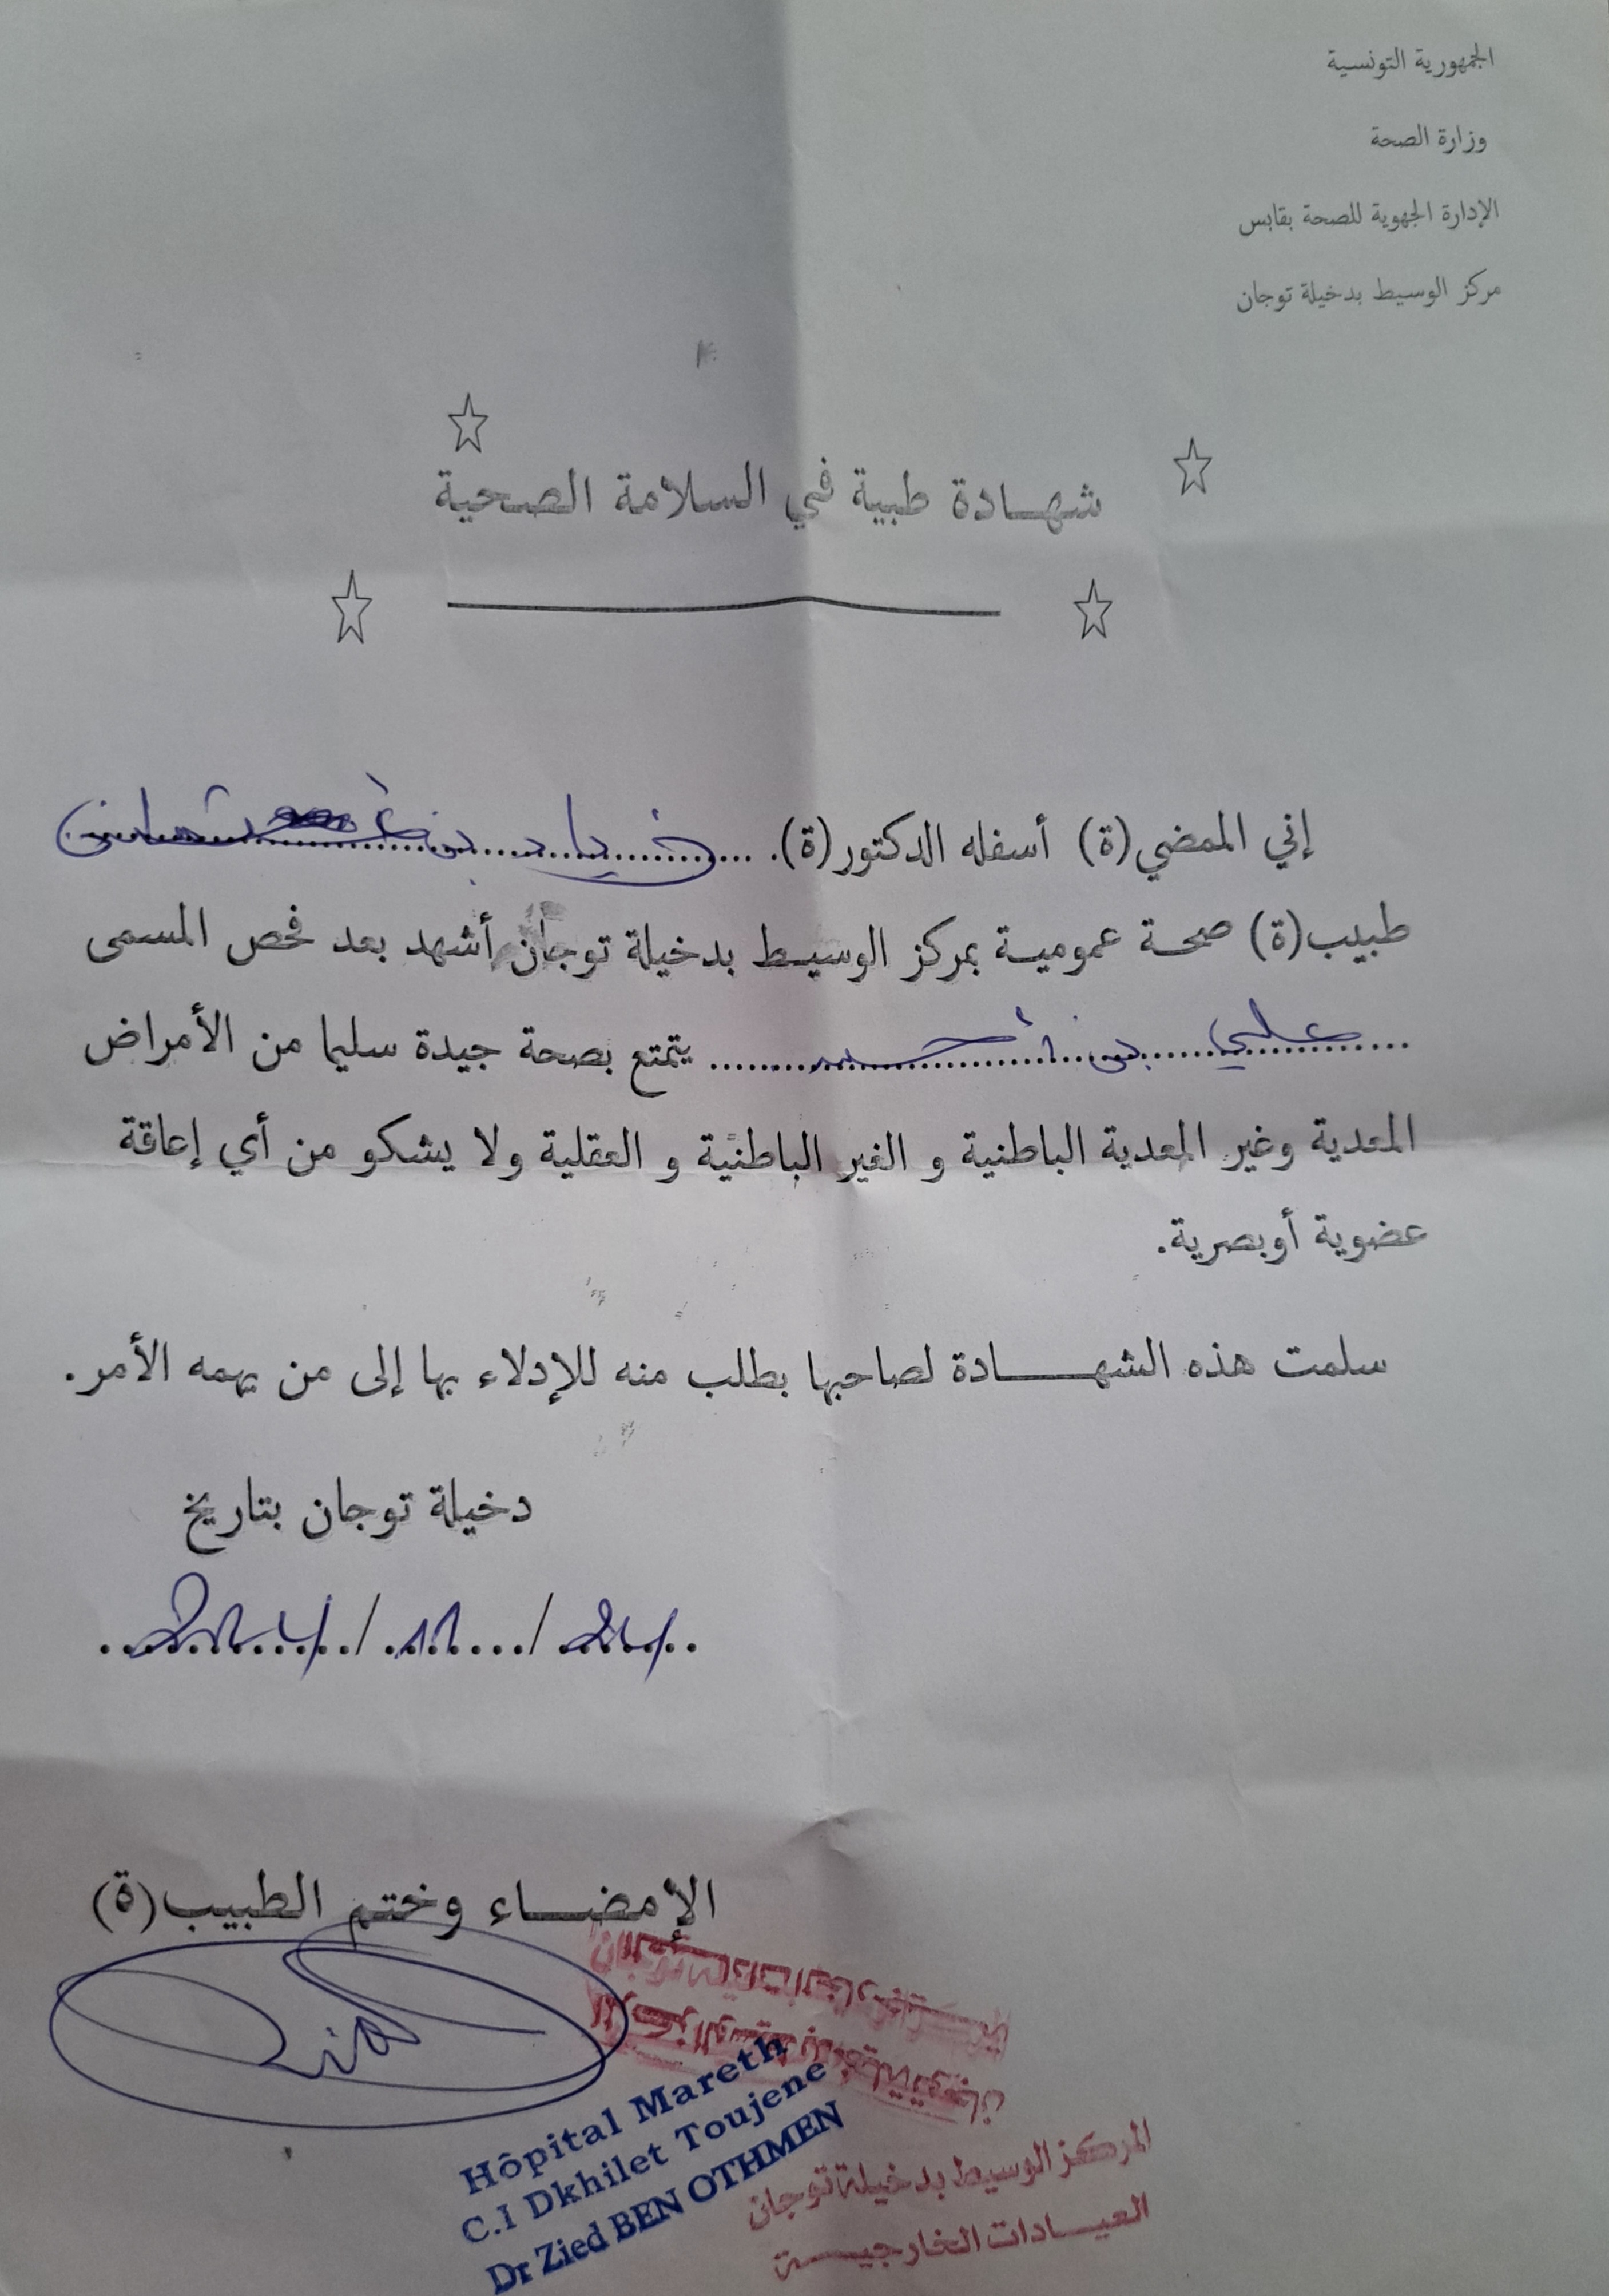 الجمهورية التونسية
وزارة الصحة
الإدارة الجهوية للصحة بقابس
مركز الوسيط بدخيلة توجان
شهادة طبية في السلامة الصحية
إني الممضي(ة) أسفله الدكتور(ة). زياد بن عثمان
طبيب(ة) صحة عمومية بمركز الوسيط بدخيلة توجان أشهد بعد فحص المسمى
علي بن أحمد يتمتع بصحة جيدة سليما من الأمراض
المعدية وغير المعدية الباطنية و الغير الباطنية و العقلية ولا يشكو من أي إعاقة
عضوية أوبصرية.
سلمت هذه الشهادة لصاحبها بطلب منه للإدلاء بها إلى من يهمه الأمر.
دخيلة توجان بتاريخ
الإمضاء وختم الطبيب(ة)
Zied
Hôpital Mareth
C.I Dkhilet Toujene
Dr Zied BEN OTHMEN
المركز الوسيط بدخيلة توجان
العيادات الخارجية